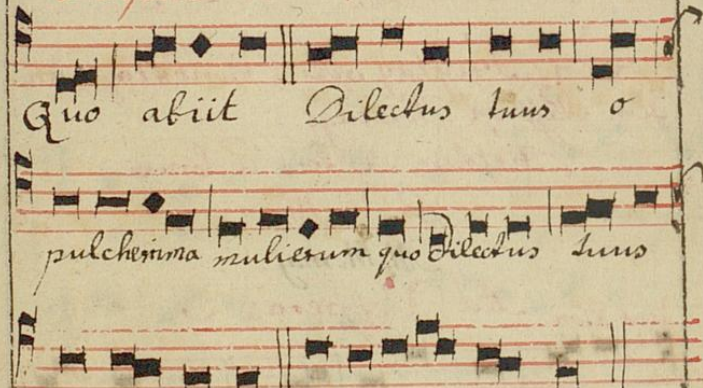 Quo abiit Dilectus tuus o
pulcherima mulierum quo Dilectus tuus